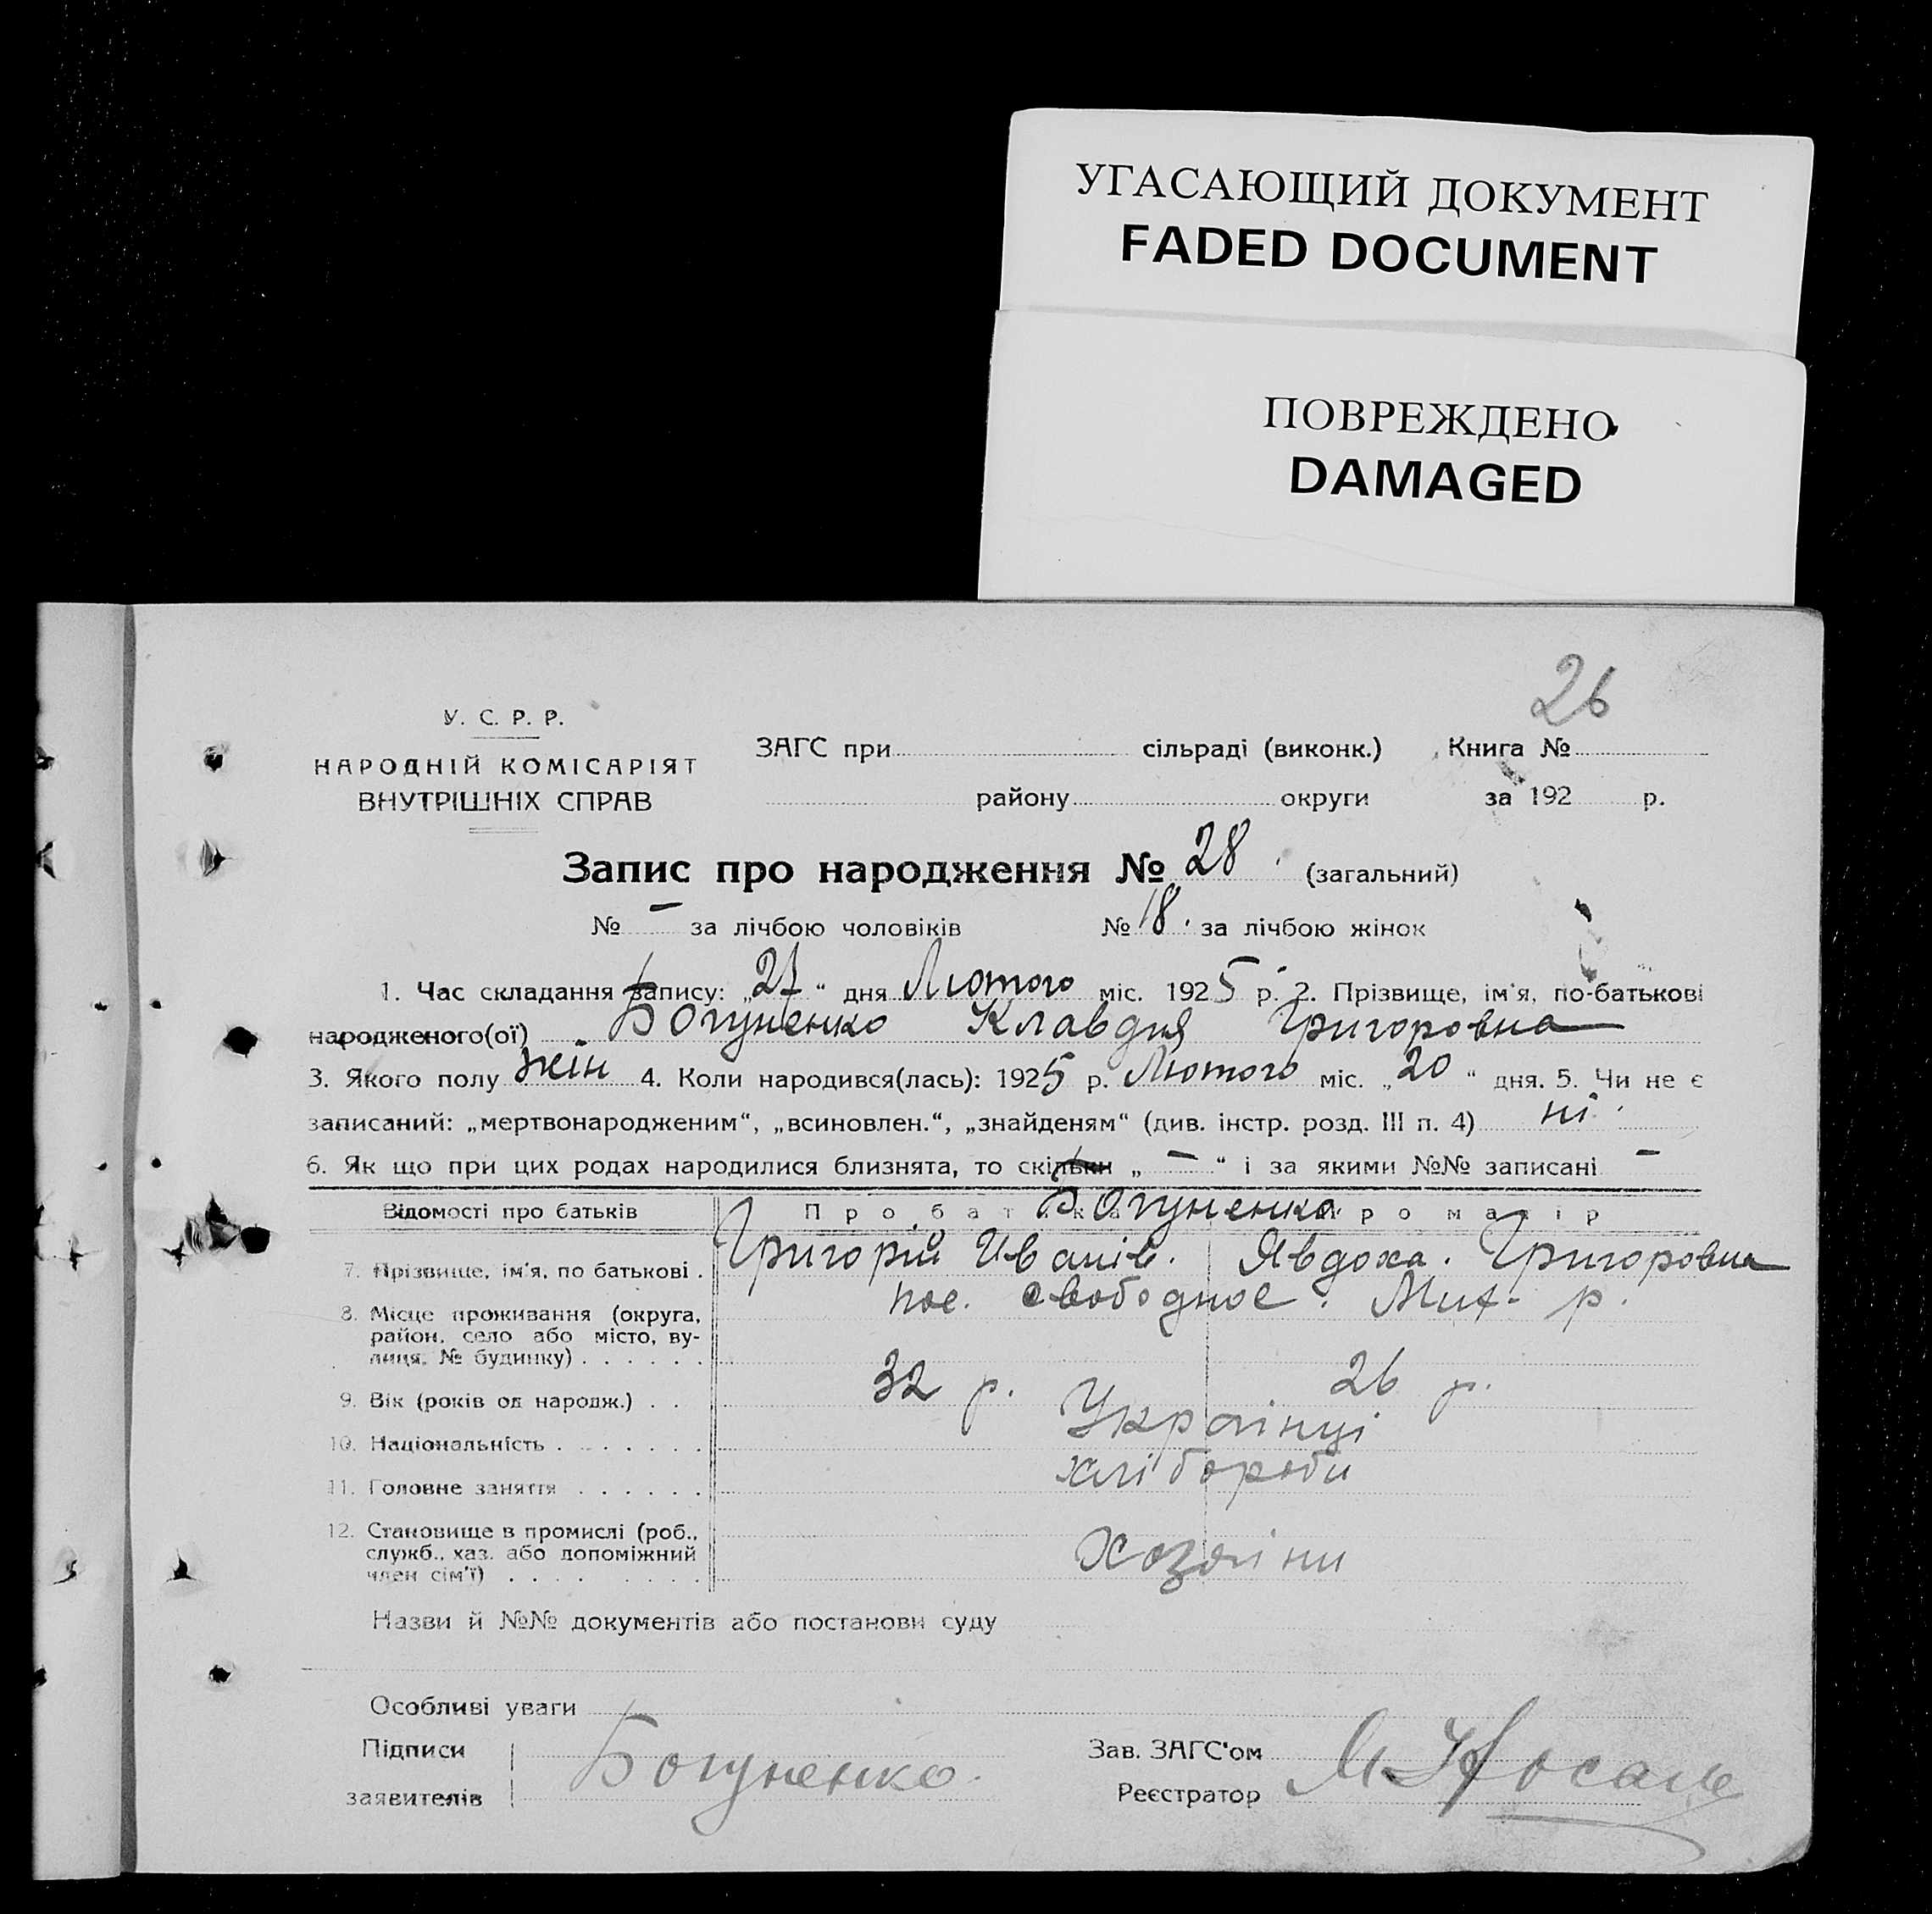 УГАСАЮЩИЙ ДОКУМЕНТ
FADED DOCUMENT
ПОВРЕЖДЕНО
DAMAGED
26
У. С. Р. Р.
НАРОДНІЙ КОМІСАРІЯТ
ВНУТРІШНІХ СПРАВ
ЗАГС при сільраді (виконк.) Книга №
району округи за 192 р.
Запис про народження № 28. (загальний)
№ — за лічбою чоловіків № 18. за лічбою жінок
1. Час складання запису: „27“ дня Лютого міс. 1925 р. 2. Прізвище, ім'я, по-батькові
народженого(ої) Богуненко Клавдия Григоровна
3. Якого полу жін 4. Коли народився(лась): 1925 р. Лютого міс. „20“ дня. 5. Чи не є
записаний: „мертвонародженим“, „всиновлен.“, „знайденям“ (див. інстр. розд. III п. 4) ні.
6. Як що при цих родах народилися близнята, то скільки „—“ і за якими №№ записані —
Відомості про батьків Про батька Про матір
Богуненко
7. Прізвище, ім'я, по батькові . Григорій Иванів. Явдоха. Григоровна
8. Місце проживання (округа, район, село або місто, вулиця, № будинку) . . . . . . пос. свободное. Мих- р.
9. Вік (років од народж.) . . 32 р. 26 р.
10. Національність . . . . . . . Українці
11. Головне заняття . . . . . . хлібороби
12. Становище в промислі (роб., служб., хаз. або допоміжний член сім'ї) . . . . . . . . Хозяіни
Назви й №№ документів або постанови суду
Особливі уваги
Підписи заявителів Богуненко.
Зав. ЗАГС'ом
Реєстратор М Носаль